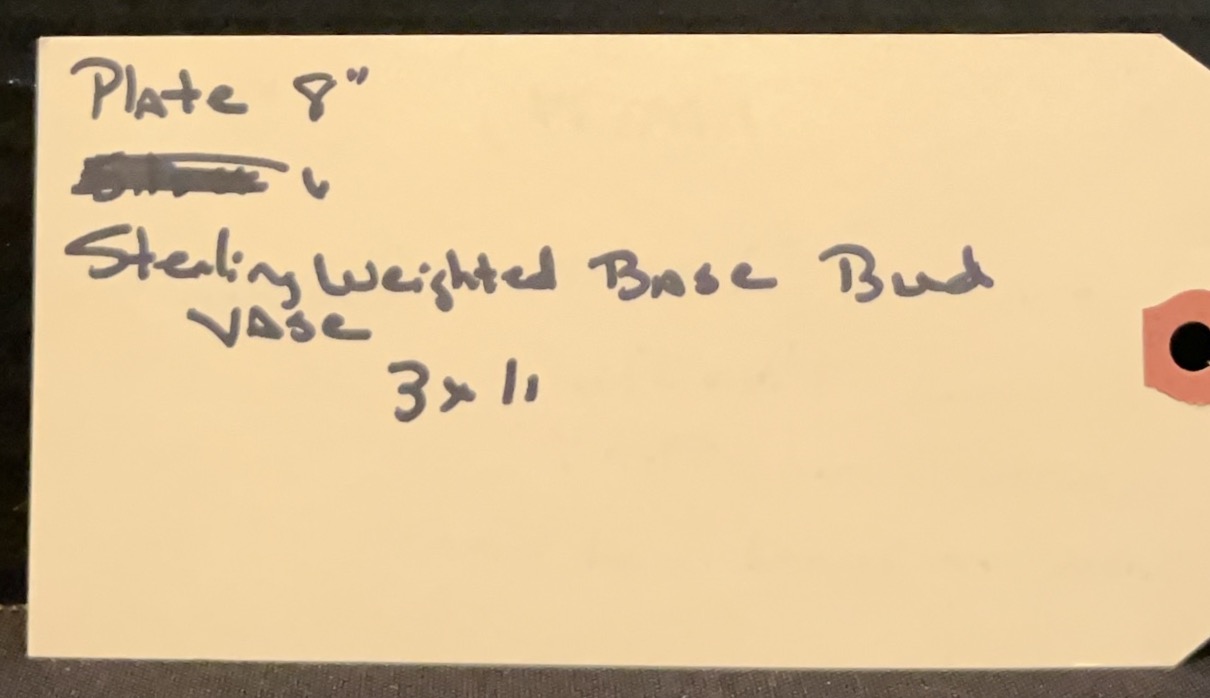 Plate 8"
Sterling Weighted Base Bud
Vase
3 x 11